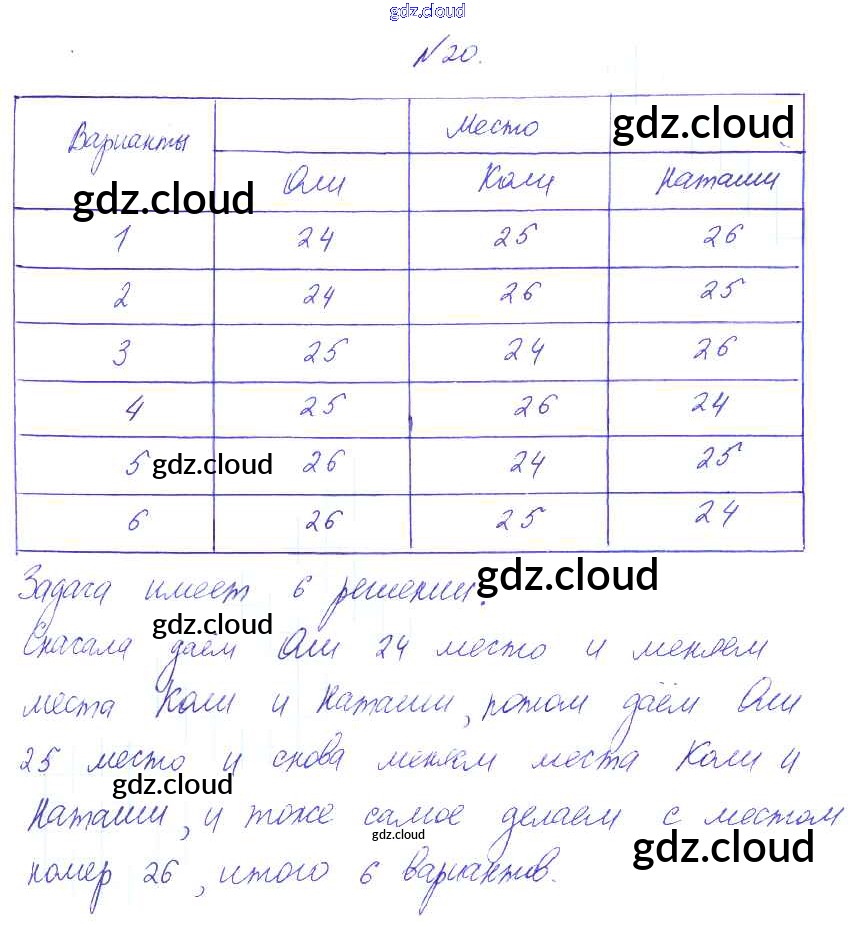 gdz.cloud
№20.
Варианты Место gdz.cloud
Оли Коли Наташи
gdz.cloud
1 24 25 26
2 24 26 25
3 25 24 26
4 25 26 24
5 gdz.cloud 26 24 25
6 26 25 24
Задача имеет 6 решении. gdz.cloud
gdz.cloud
Сначала даём Оли 24 место и меняем
места Коли и Наташи, потом даём Оли
25 место и снова меняем места Коли и
gdz.cloud
Наташи, и тоже самое делаем с местом
gdz.cloud gdz.cloud
номер 26, итого 6 вариантов.